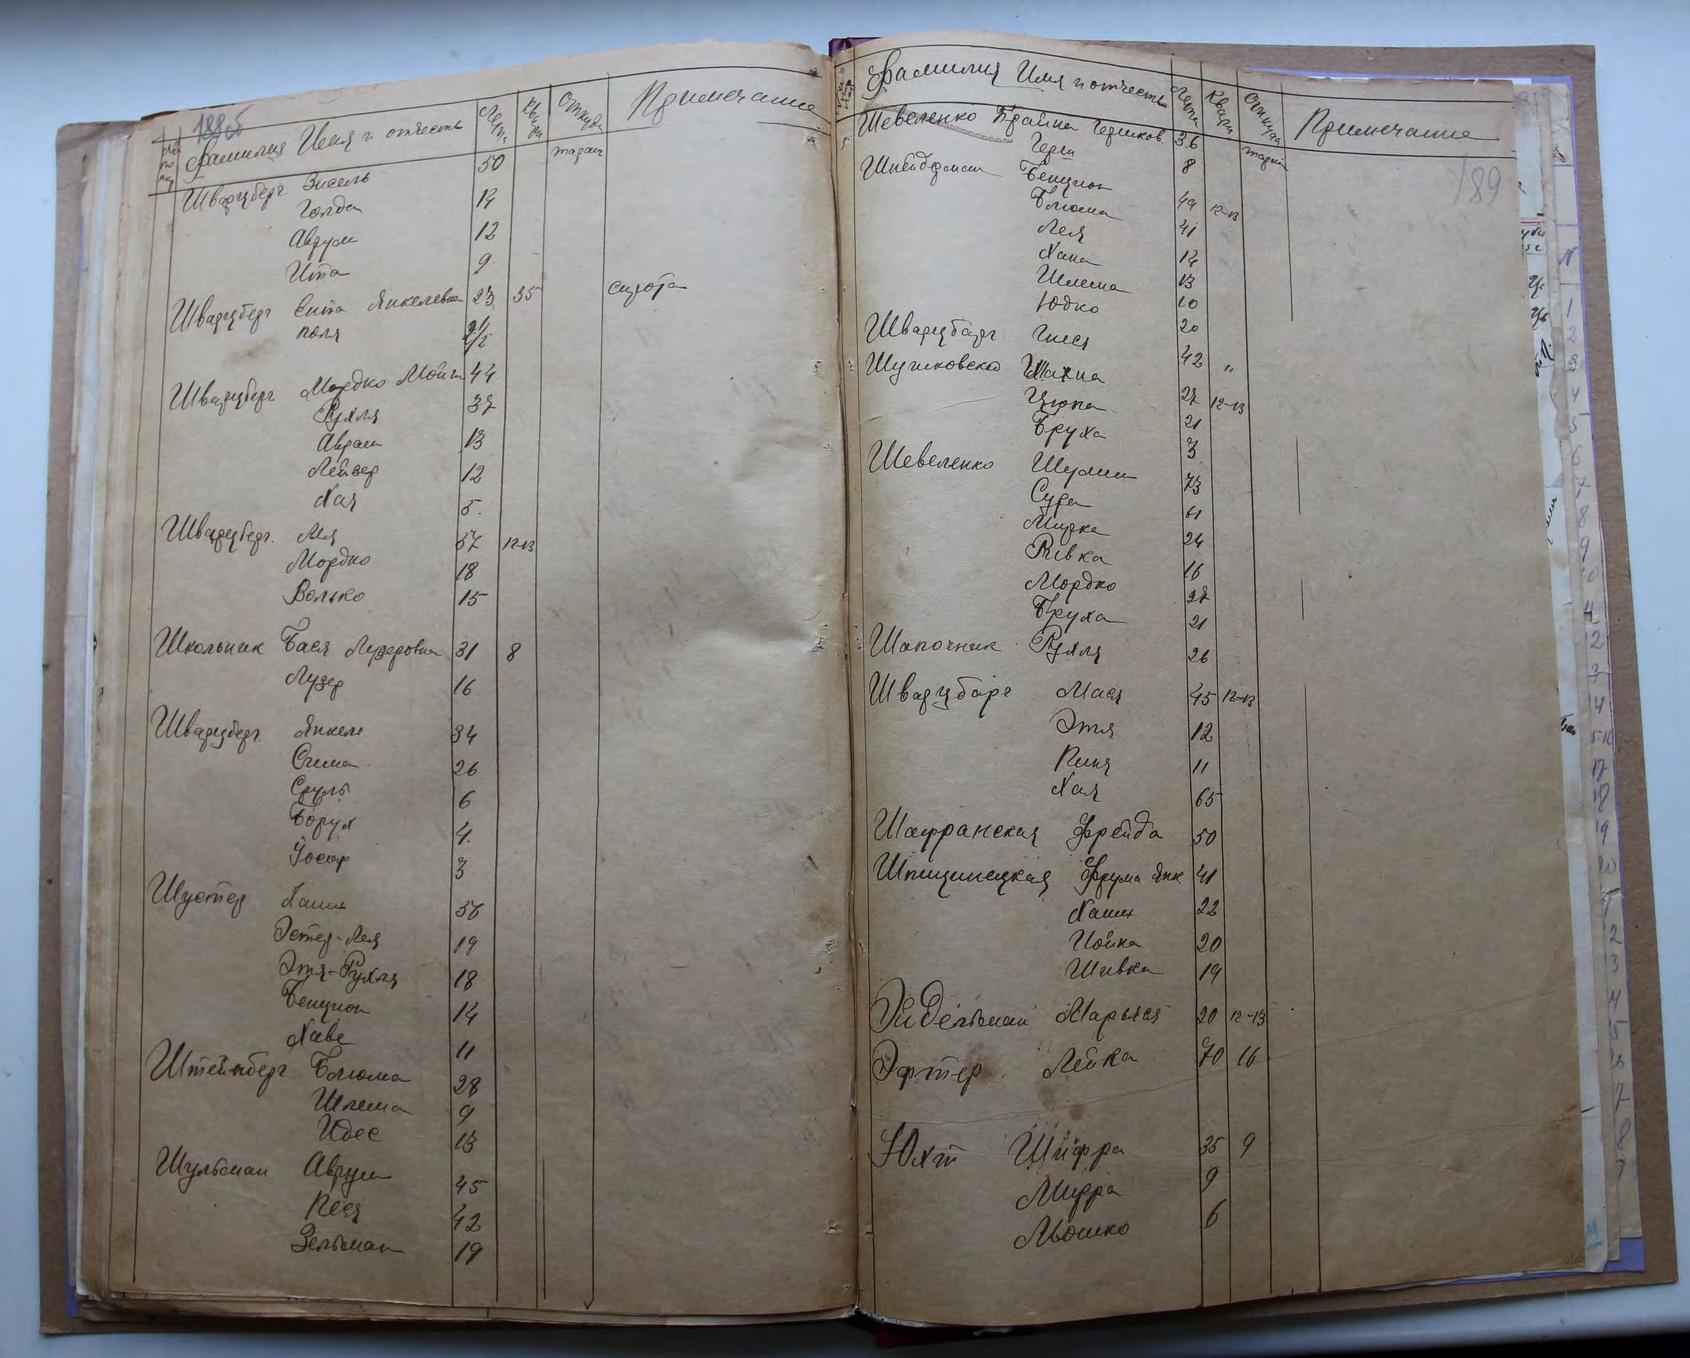 188об
Фамилия Имя и отчеств Лета Квар. Откуда Примечание
Шварцберг Зисель 50 таращ
Голда 14
Аврум 12
Ита 9
Шварцберг Сита Янкелевна 23 35 сирота
поля 2 1/2
Шварцберг Мордко Мойш 44
Рухля 37
Аврам 13
Лейзер 12
Хая 5.
Шварцберг. Лея 57 12-13
Мордко 18
Волько 15
Школьник Бася Лузеровна 31 8
Лузер 16
Шварцберг. Янкель 34
Сима 26
Сруль 6
Борух 4.
Иосиф 3
Шустер Хаим 57
Эстер-Лея 19
Этя-Рухля 18
Бенцион 14
Хаве 11
Штейнберг Блюма 28
Шлема 9
Идес 13
Шульман Аврум 45
Песя 42
Зельман 19
Фамилия Имя и отчество Лета Кварт Откуда Примечание
189
Шевеленко Крайна Гершков. 36 таращ
Герш 8
Шнейдерман Бенцион 49 12-13
Блюма 41
Лея 14
Хана 13
Шлема 10
Юдко 20
Шварцбарг Гися 42 "
Шушковская Махна 27 12-13
Цюпа 21
Бруха 3
Шевеленко Шулим 73
Сура 61
Мирка 24
Ривка 16
Мордко 27
Бруха 21
Шапочник Рухля 26
Шварцбарг Мася 45 12-13
Этя 12
Пиня 11
Хая 65
Шафранская Фрейда 50
Шпищинецкая Фрума Янк. 41
Хаим 22
Цойка 20
Шивка 19
Эйдельман Марьяся 20 12-13
Эфтер Лейка 70 16
Юхт Шифра 35 9
Мирра 9
Мошко 6